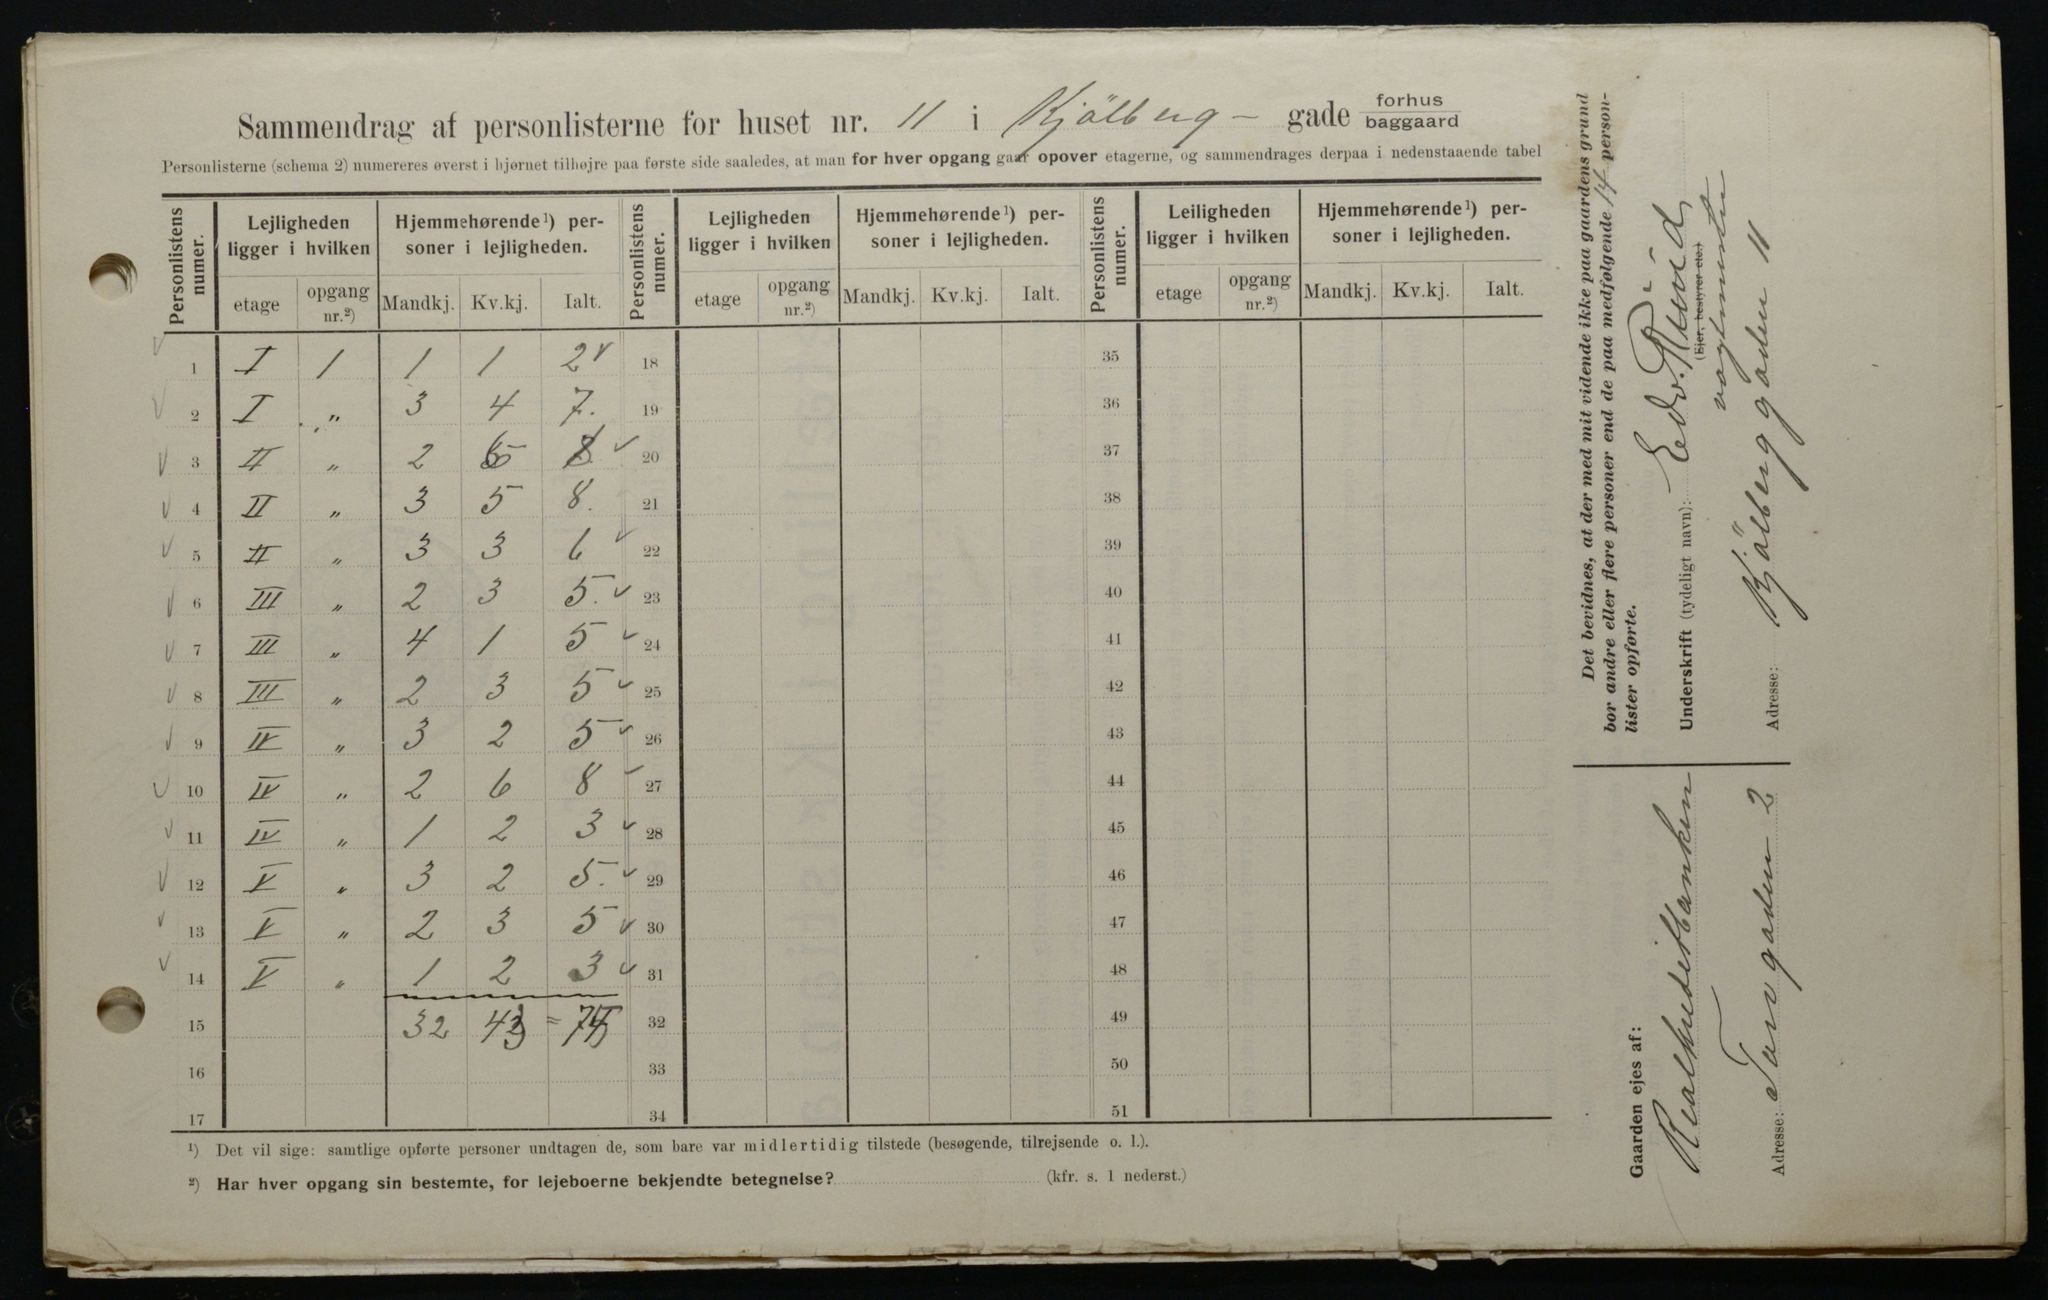 Sammendrag af personlisterne for huset nr. 11 i Kjölberg- gade forhus baggaard
Personlisterne (schema 2) numereres øverst i hjørnet tilhøjre paa første side saaledes, at man for hver opgang gaar opover etagerne, og sammendrages derpaa i nedenstaaende tabel
Personlistens numer. Lejligheden ligger i hvilken Hjemmehørende¹) personer i lejligheden. Personlistens numer. Lejligheden ligger i hvilken Hjemmehørende¹) personer i lejligheden. Personlistens numer. Leiligheden ligger i hvilken Hjemmehørende¹) personer i lejligheden.
etage opgang nr.²) Mandkj. Kv.kj. Ialt. etage opgang nr.²) Mandkj. Kv.kj. Ialt. etage opgang nr.²) Mandkj. Kv.kj. Ialt.
1 I 1 1 1 2 18 35
2 I „ 3 4 7. 19 36
3 II „ 2 20 37
4 II „ 3 5 8. 21 38
5 II „ 3 3 6 22 39
6 III „ 2 3 5. 23 40
7 III „ 4 1 5 24 41
8 III „ 2 3 5 25 42
9 IV „ 3 2 5 26 43
10 IV „ 2 6 8 27 44
11 IV „ 1 2 3 28 45
12 V „ 3 2 5. 29 46
13 V „ 2 3 5 30 47
14 V „ 1 2 3 31 48
15 32 43 = 75 32 49
16 33 50
17 34 51
¹) Det vil sige: samtlige opførte personer undtagen de, som bare var midlertidig tilstede (besøgende, tilrejsende o. l.).
²) Har hver opgang sin bestemte, for lejeboerne bekjendte betegnelse? (kfr. s. 1 nederst.)
Det bevidnes, at der med mit vidende ikke paa gaardens grund
bor andre eller flere personer end de paa medfølgende 14 person-
lister opførte.
Underskrift (tydeligt navn): Edv.
(Ejer, bestyrer etc.)
vagtmester
Adresse: Kjölberggaden 11
Gaarden ejes af:
Realkreditbanken
Adresse: Torvgaden 2